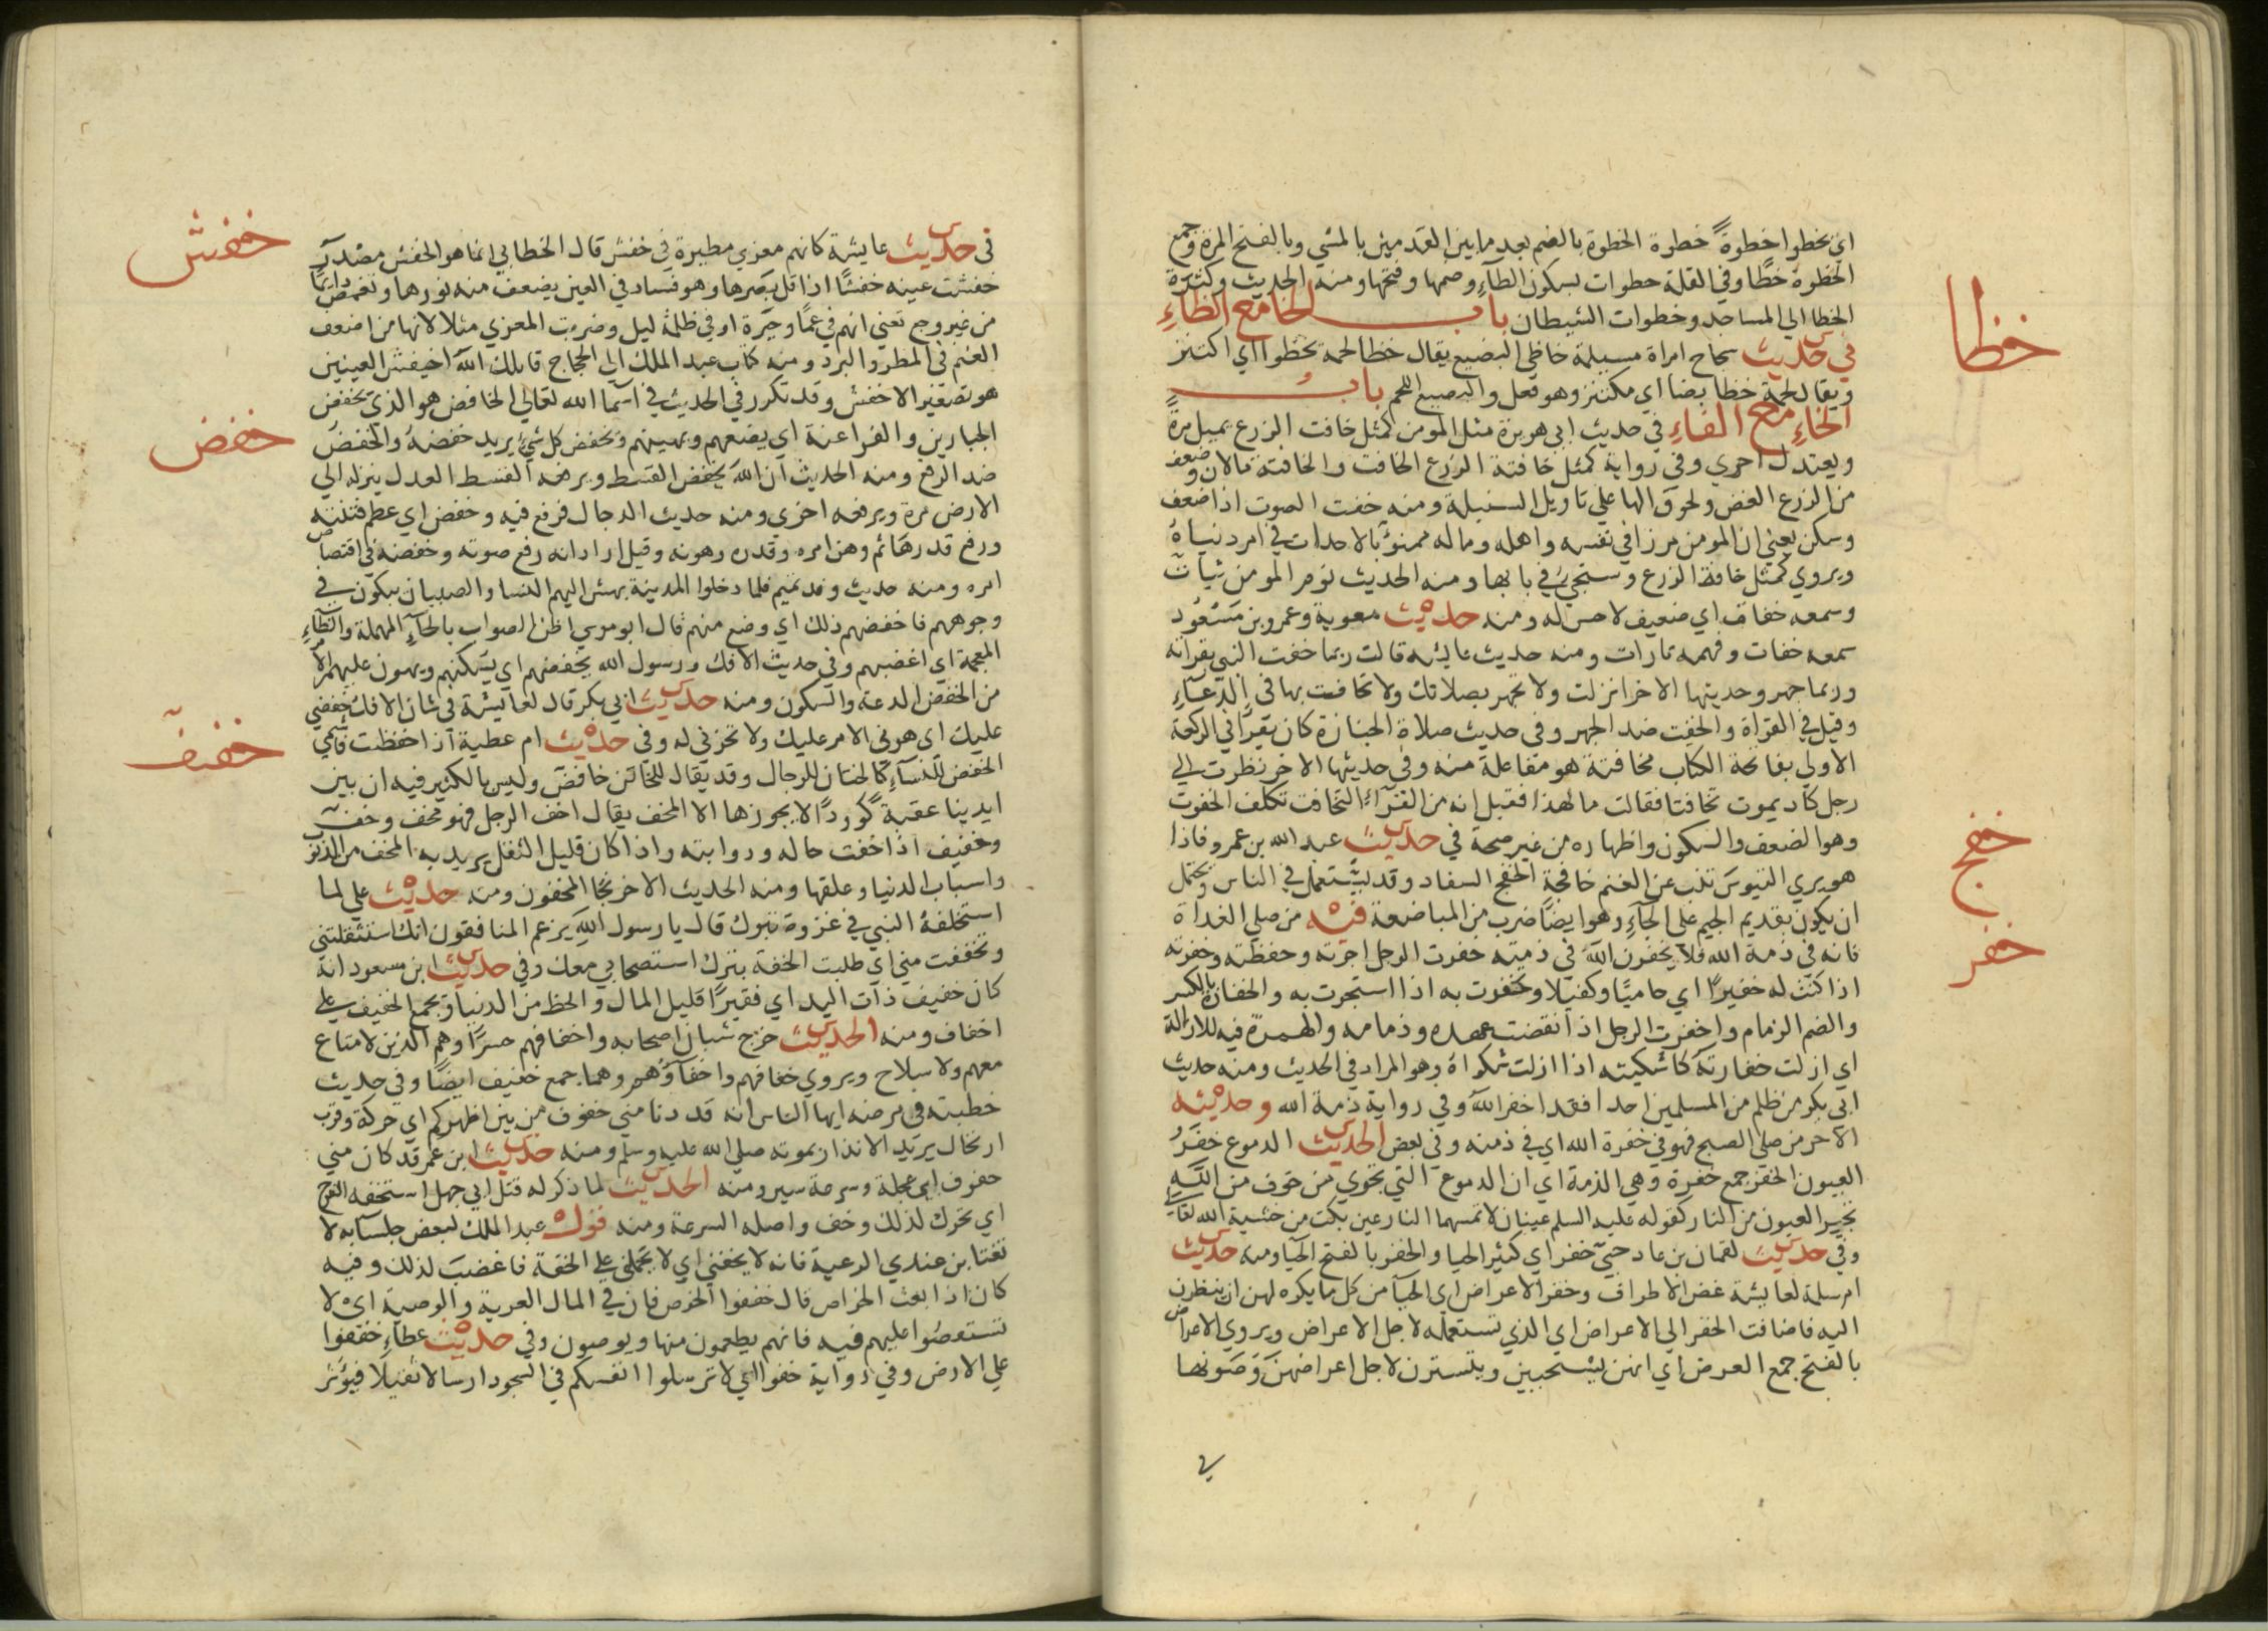 خظا
خفج
خفر
اي يخطوا خطوة خطوة الخطوة بالضم بعد ما بين القدمين بالمشي وبالفتح المرة وجمع
الخطوة خطا وفي القلة خطوات بسكون الطاء وضمها وفتحها ومنه الحديث وكثرة
الخطا الي المساجد وخطوات الشيطان باب الخا مع الظاء
في حديث سجاح امراة مسيلمة خاظي البضيع يقال خظا لحمه يخظوا اي اكتنز
ويقال لحمه خظا بضا اي مكتنز وهو فعل والبضيع اللحم باب
الخاء مع الفاء في حديث ابي هريرة مثل المومن كمثل خافت الزرع يميل مرة
ويعتدل اخري وفي رواية كمثل خافتة الزرع الخافت والخافتة ما لان وضعف
من الزرع الغض ولحوق الها علي تاويل السنبلة ومنه خفت الصوت اذا ضعف
وسكن يعني ان المومن مرزا في نفسه واهله وماله ممنو بالاحداث في امر دنياه
ويروي كمثل خافة الزرع وستجي في بابها ومنه الحديث نوم المومن ثبات
وسمعه خفات اي ضعيف لا حس له ومنه حديث معوية وعمرو بن مسعود
سمعه خفات وفهمه تارات ومنه حديث عايشه قالت ربما خفت النبي بقراته
وربما جهر وحديثها الاخر انزلت ولا تجهر بصلاتك ولا تخافت بها في الدعاء
وقيل في القراة والخفت ضد الجهر وفي حديث صلاة الجنازة كان يقرا في الركعة
الاولي بفاتحة الكتاب مخافتة هو مفاعلة منه وفي حديثها الاخر نظرت الي
رجل كاد يموت تخافتا فقالت ما لهذا فقيل انه من القراء التخافت تكلف الخفوت
وهو الضعف والسكون واظهاره من غير صحة في حديث عبد الله بن عمرو فاذا
هو يري التيوس تنب عن الغنم خافجة الخفج السفاد وقد يستعمل في الناس ويحتمل
ان يكون بتقديم الجيم علي الخاء وهو ايضا ضرب من المباضعة فيه من صلي الغداة
فانه في ذمة الله فلا يخفرن الله في ذمته خفرت الرجل اجرته وحفظته وخفرته
اذا كنت له خفيرا اي حاميا وكفيلا وتخفرت به اذا استجرت به والخفارة بالكسر
والضم الزمام واخفرت الرجل اذا انقضت عهده وذمامه والهمزة فيه للازالة
اي ازلت خفارته كاشكيته اذا ازلت شكواه وهو المراد في الحديث ومنه حديث
ابي بكر من ظلم من المسلمين احدا فقد اخفر الله وفي رواية ذمة الله وحديثه
الاخر من صلي الصبح فهو في خفرة الله اي في ذمته وفي بعض الحديث الدموع خفر
العيون الخفر جمع خفرة وهي الذمة اي ان الدموع التي تجري من خوف من الله
تجير العيون من النار كقوله عليه السلم عينان لا تمسهما النار عين بكت من خشية الله تعالي
وفي حديث لقمان بن عاد حيي خفر اي كثير الحيا والخفر بالفتح الحيا ومنه حديث
ام سلمة لعايشة غض الاطراف وخفر الاعراض اي الحيا من كل ما يكره لهن ان ينظرن
اليه فاضافت الخفر الي الاعراض اي الذي تستعمله لاجل الاعراض ويروي الاعراض
بالفتح جمع العرض اي انهن يستحيين ويتسترن لاجل اعراضهن وصونها
في
خفش
خفض
خفف
في حديث عايشة كانهم معزي مطيرة في خفش قال الخطابي انما هو الخفش مصدر
خفشت عينه خفشا اذا قل بصرها وهو فساد في العين يضعف منه نورها وتغمص دايما
من غير وجع تعني انهم في عما وحيرة او في ظلمة ليل وضربت المعزي مثلا لانها من اضعف
الغنم في المطر والبرد ومنه كتاب عبد الملك الي الحجاج قاتلك الله اخيفش العينين
هو تصغير الاخفش وقد تكرر في الحديث في اسما الله تعالي الخافض هو الذي يخفض
الجبارين والفراعنة اي يضعهم ويهينهم ويخفض كل شي يريد خفضه والخفض
ضد الرفع ومنه الحديث ان الله يخفض القسط ويرفعه القسط العدل ينزله الي
الارض مرة ويرفعه اخري ومنه حديث الدجال فرفع فيه وخفض اي عظم فتنته
ورفع قدرها ثم وهن امره وقدره وهونه وقيل اراد انه رفع صوته وخفضه في اقتصاص
امره ومنه حديث وفد تميم فلما دخلوا المدينة بهش اليهم النسا والصبيان يبكون في
وجوههم فاخفضهم ذلك اي وضع منهم قال ابو موسي اظن الصواب بالحاء المهملة والظاء
المعجمة اي اغضبهم وفي حديث الافك ورسول الله يخفضهم اي يسكنهم ويهون عليهم الامر
من الخفض الدعة والسكون ومنه حديث ابي بكر قال لعايشة في شان الافك خفضي
عليك اي هوني الامر عليك ولا تحزني له وفي حديث ام عطية اذا خفظت فاشمي
الخفض للنساء كالختان للرجال وقد يقال للخاتن خافض وليس بالكثير فيه ان بين
ايدينا عقبة كوودا لا يجوزها الا المخف يقال اخف الرجل فهو مخف وخف
وخفيف اذا خفت حاله وروابته واذا كان قليل الثقل يريد به المخف من الذنوب
واسباب الدنيا وعلقها ومنه الحديث الاخر نجا المخفون ومنه حديث علي لما
استخلفه النبي في غزوة تبوك قال يا رسول الله يزعم المنافقون انك استثقلتني
وتخففت مني اي طلبت الخفة بترك استصحابي معك وفي حديث ابن مسعود انه
كان خفيف ذات اليد اي فقيرا قليل المال والحظ من الدنيا ويجمع الخفيف علي
اخفاف ومنه الحديث خرج شبان اصحابه واخفافهم حسرا وهم الذين لا متاع
معهم ولا سلاح ويروي خفافهم واخفاؤهم وهما جمع خفيف ايضا وفي حديث
خطبته في مرضه ايها الناس انه قد دنا مني خفوف من بين اظهركم اي حركة وقرب
ارتحال يريد الانذار بموته صلي الله عليه وسلم ومنه حديث ابن عمر قد كان مني
خفوف اي عجلة وسرعة سير ومنه الحديث لما ذكر له قتل ابي جهل استخفه الفرح
اي تحرك لذلك وخف واصله السرعة ومنه قول عبد الملك لبعض جلسايه لا
تغتابن عندي الرعية فانه لا يخفني اي لا يحملني علي الخفة فاغضب لذلك وفيه
كان اذا بعث الخراص قال خففوا الخرص فان في المال العرية والوصية اي لا
تستعصوا عليهم فيه فانهم يطعمون منها ويوصون وفي حديث عطاء خففوا
علي الارض وفي رواية خفوا اي لا ترسلوا انفسكم في السجود ارسالا ثقيلا فيؤثر